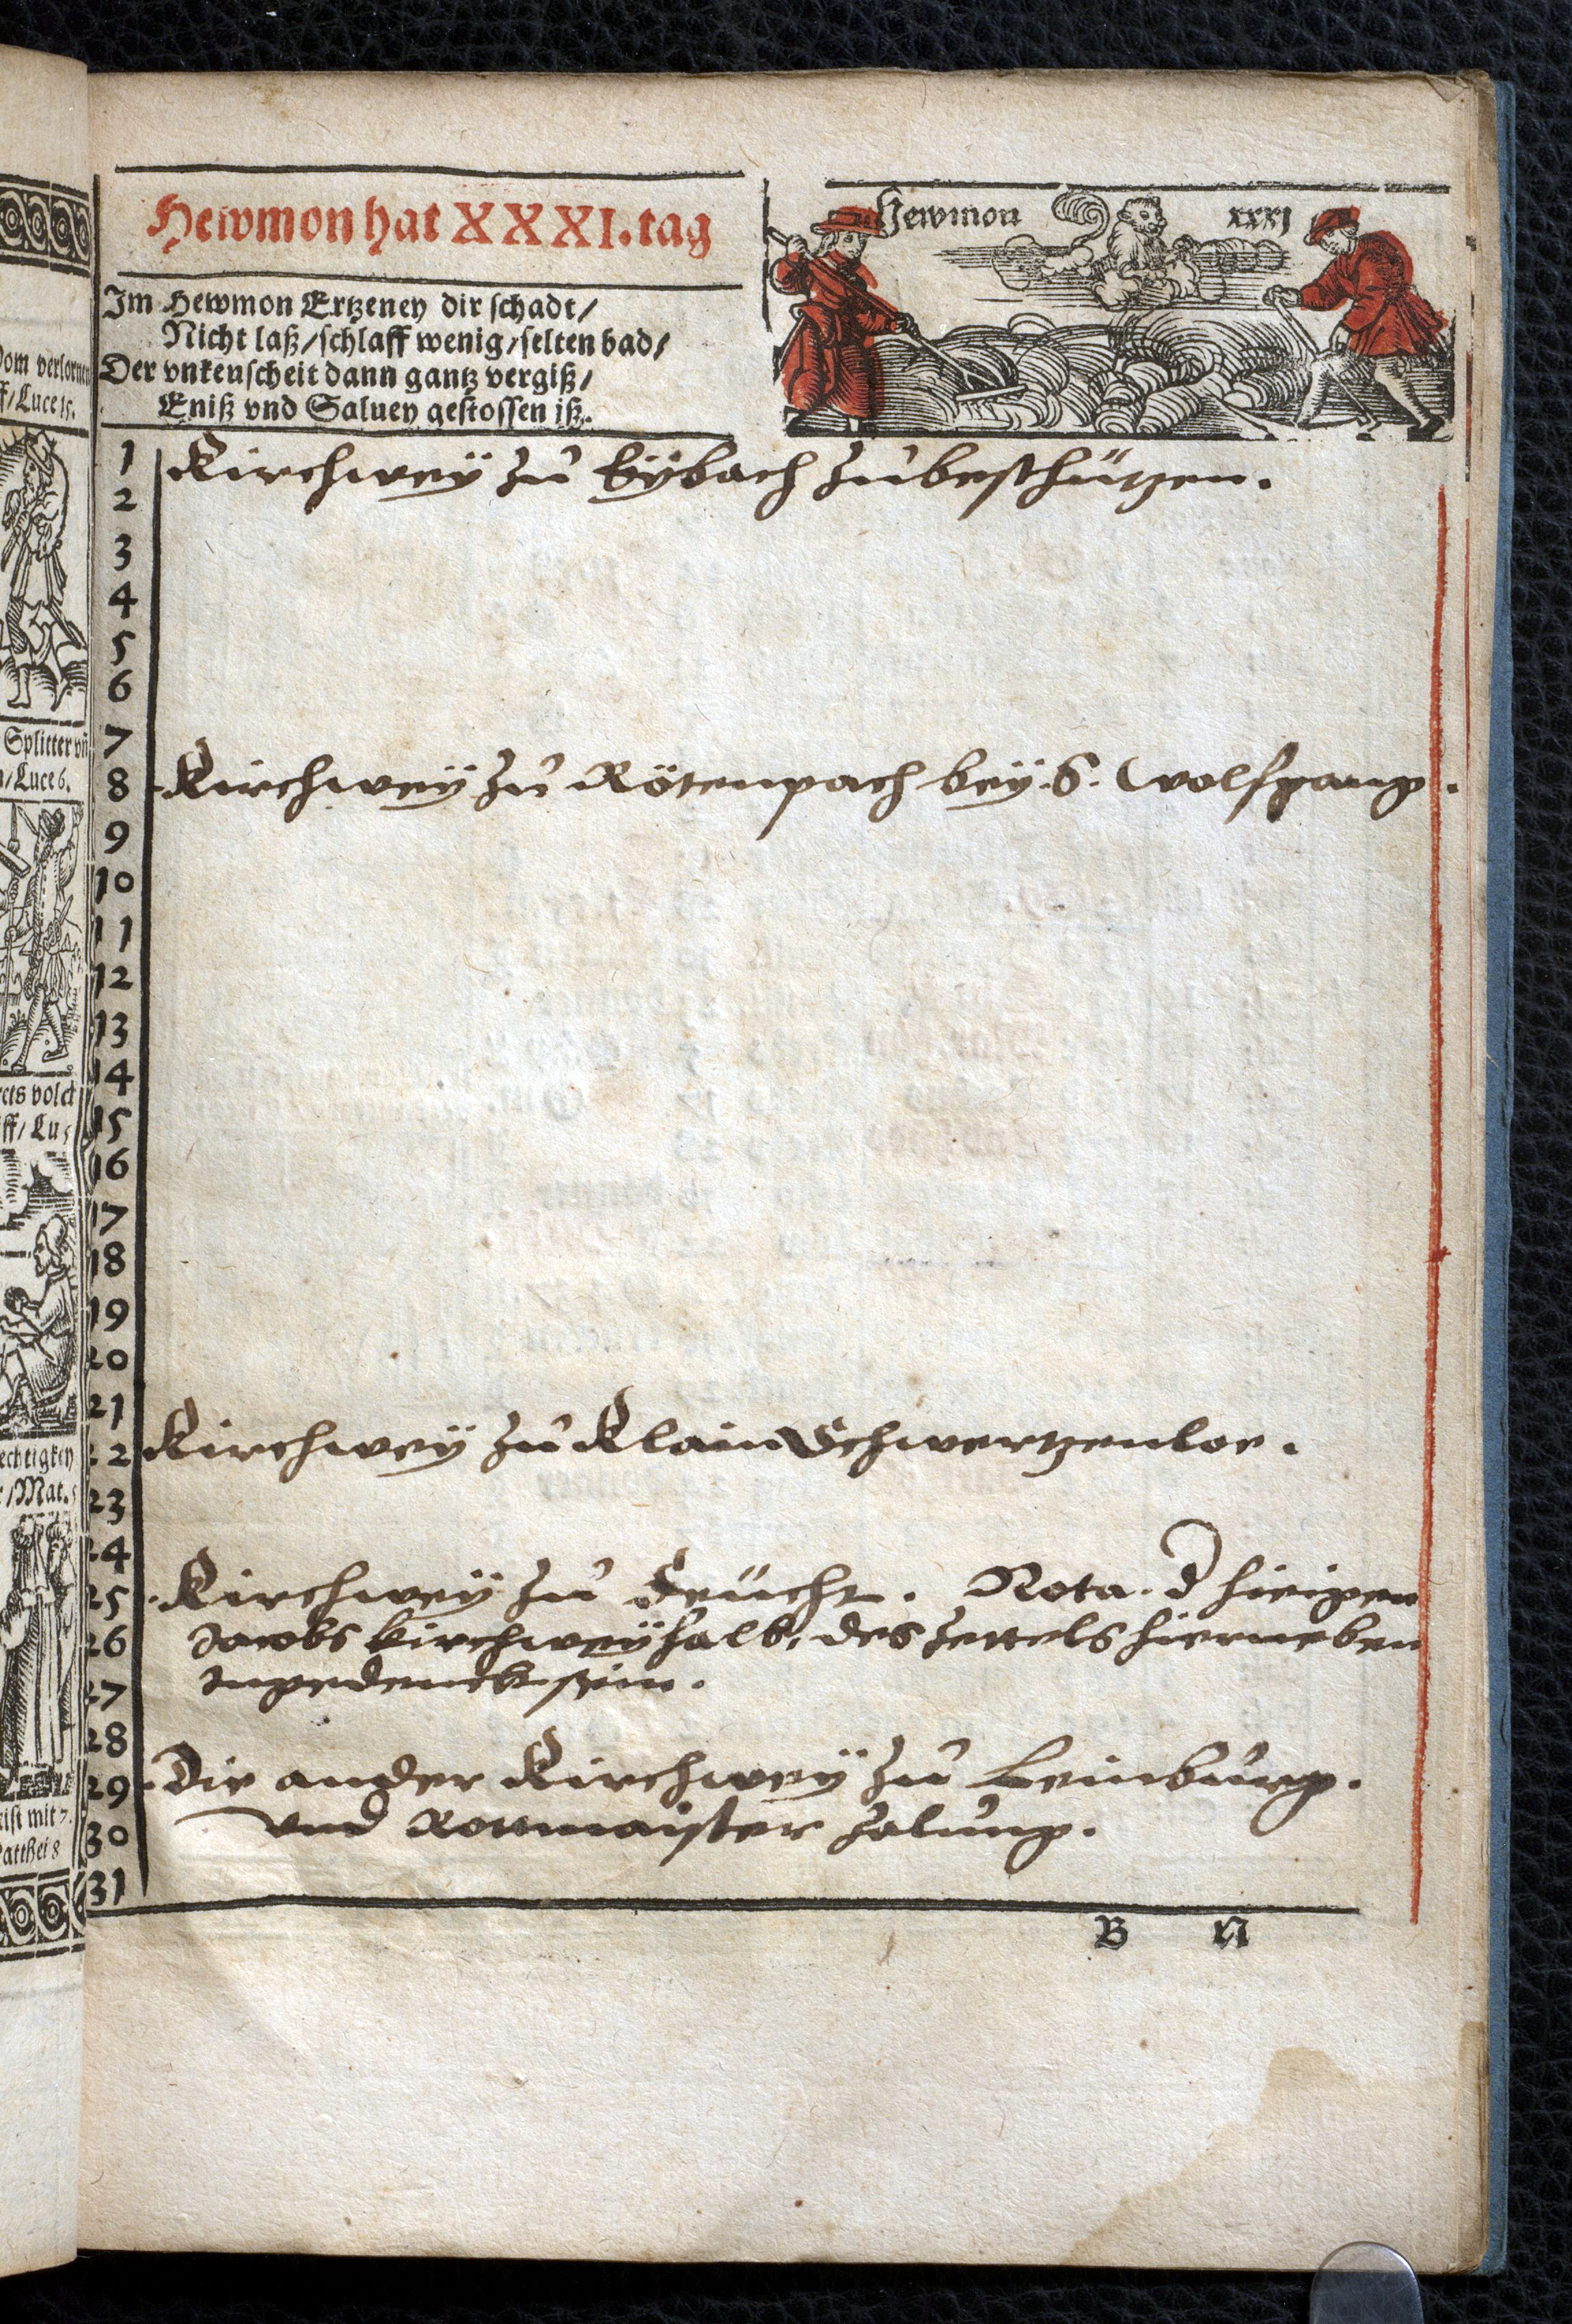 Hewmon hat XXXI. tag
Hewmon xxxj
Im Hewmon Ertzeney dir schadt/
Nicht laß/schlaff wenig/selten bad/
Der vnkeuscheit dann gantz vergiß/
Eniß vnd Saluey gestossen iß.
1 Kirchweÿ zu Eÿbach zubeschützen.
2
3
4
5
6
7
8 Kirchweÿ zu Rötenpach beÿ S. Wolfgang.
9
10
11
12
13
14
15
16
17
18
19
20
21
22 Kirchweÿ zu Klain Schwertzenloe.
23
24
25 Kirchweÿ zu Feücht. Nota. d hieigen
26 Jacobs kirchweÿ halb, des zettels hierneben
27 Ingedenck sein.
28
29 Die ander Kirchweÿ zu Leinburg.
30 vnd Rottmaister zalung.
31
B ij
Vom verlornen
ff/Luce 15.
Splitter vñ
/Luce 6.
volck
ff/Lu 5
/Mat. 5
mit 7.
atthei 8